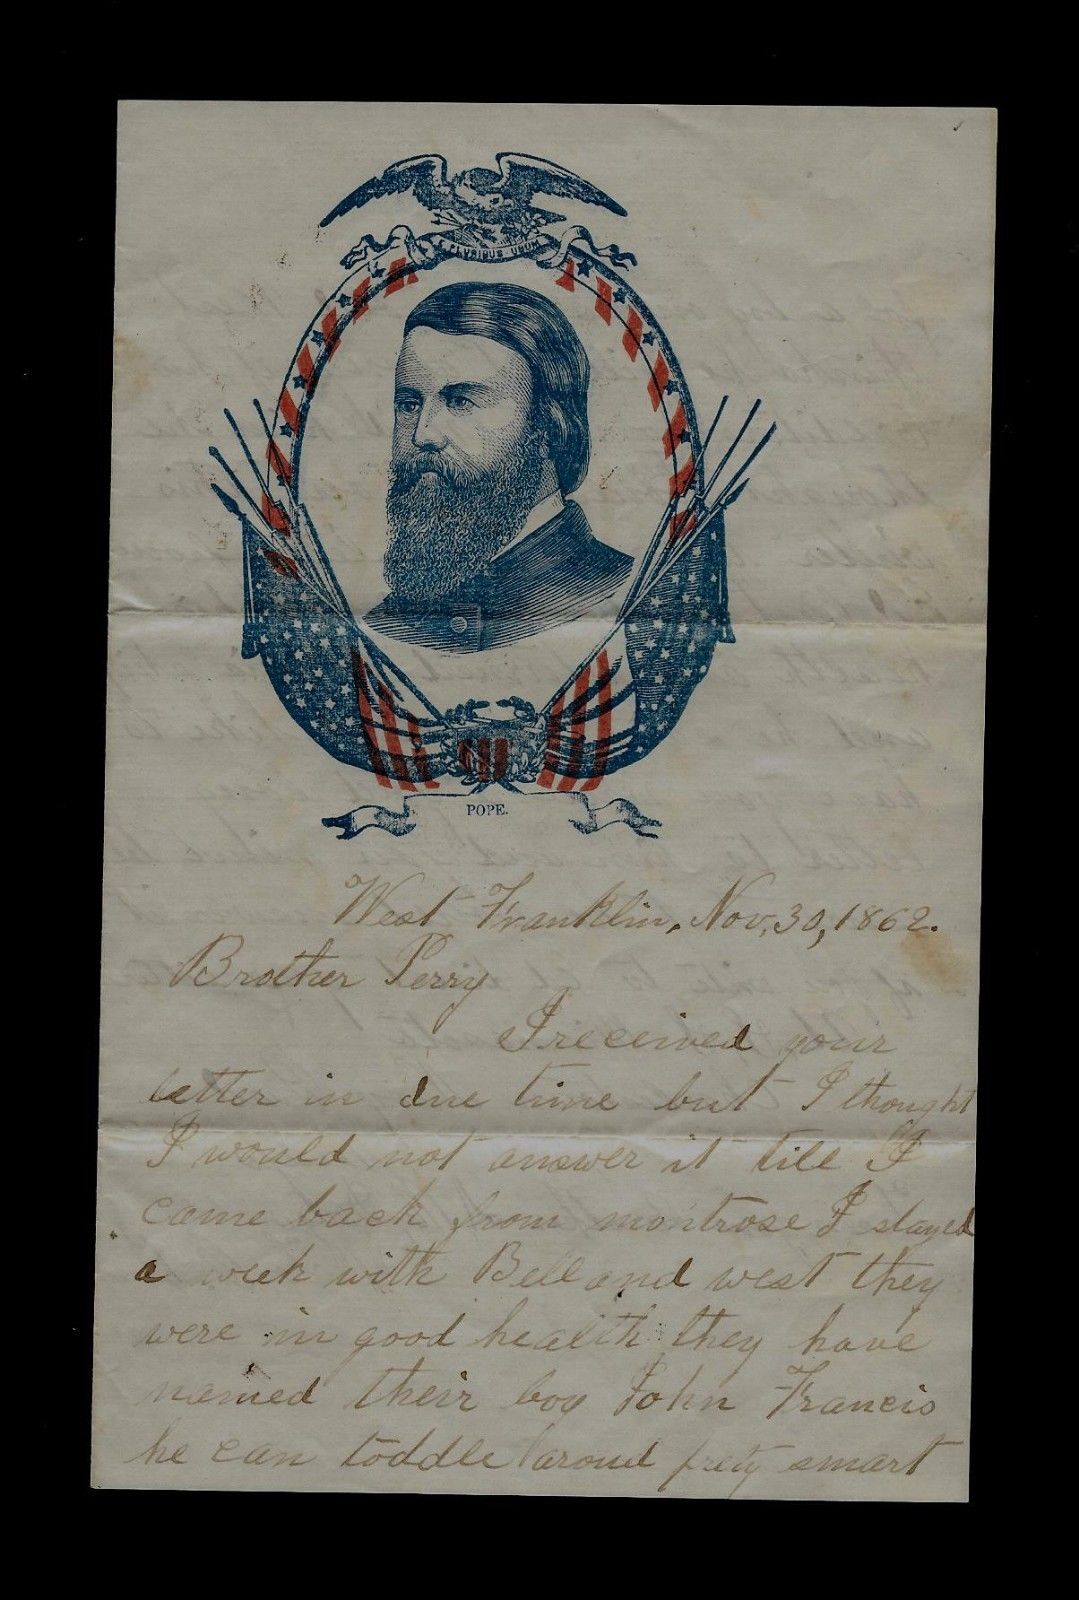 E PLURIBUS UNUM
POPE.
West Franklin, Nov, 30, 1862.
Brother Perry
I received your
letter in due time but I thought
I would not answer it till I
came back from montrose I stayed
a week with Bell and west they
were in good health they have
named their boy John Francis
he can toddle aroud prety smart